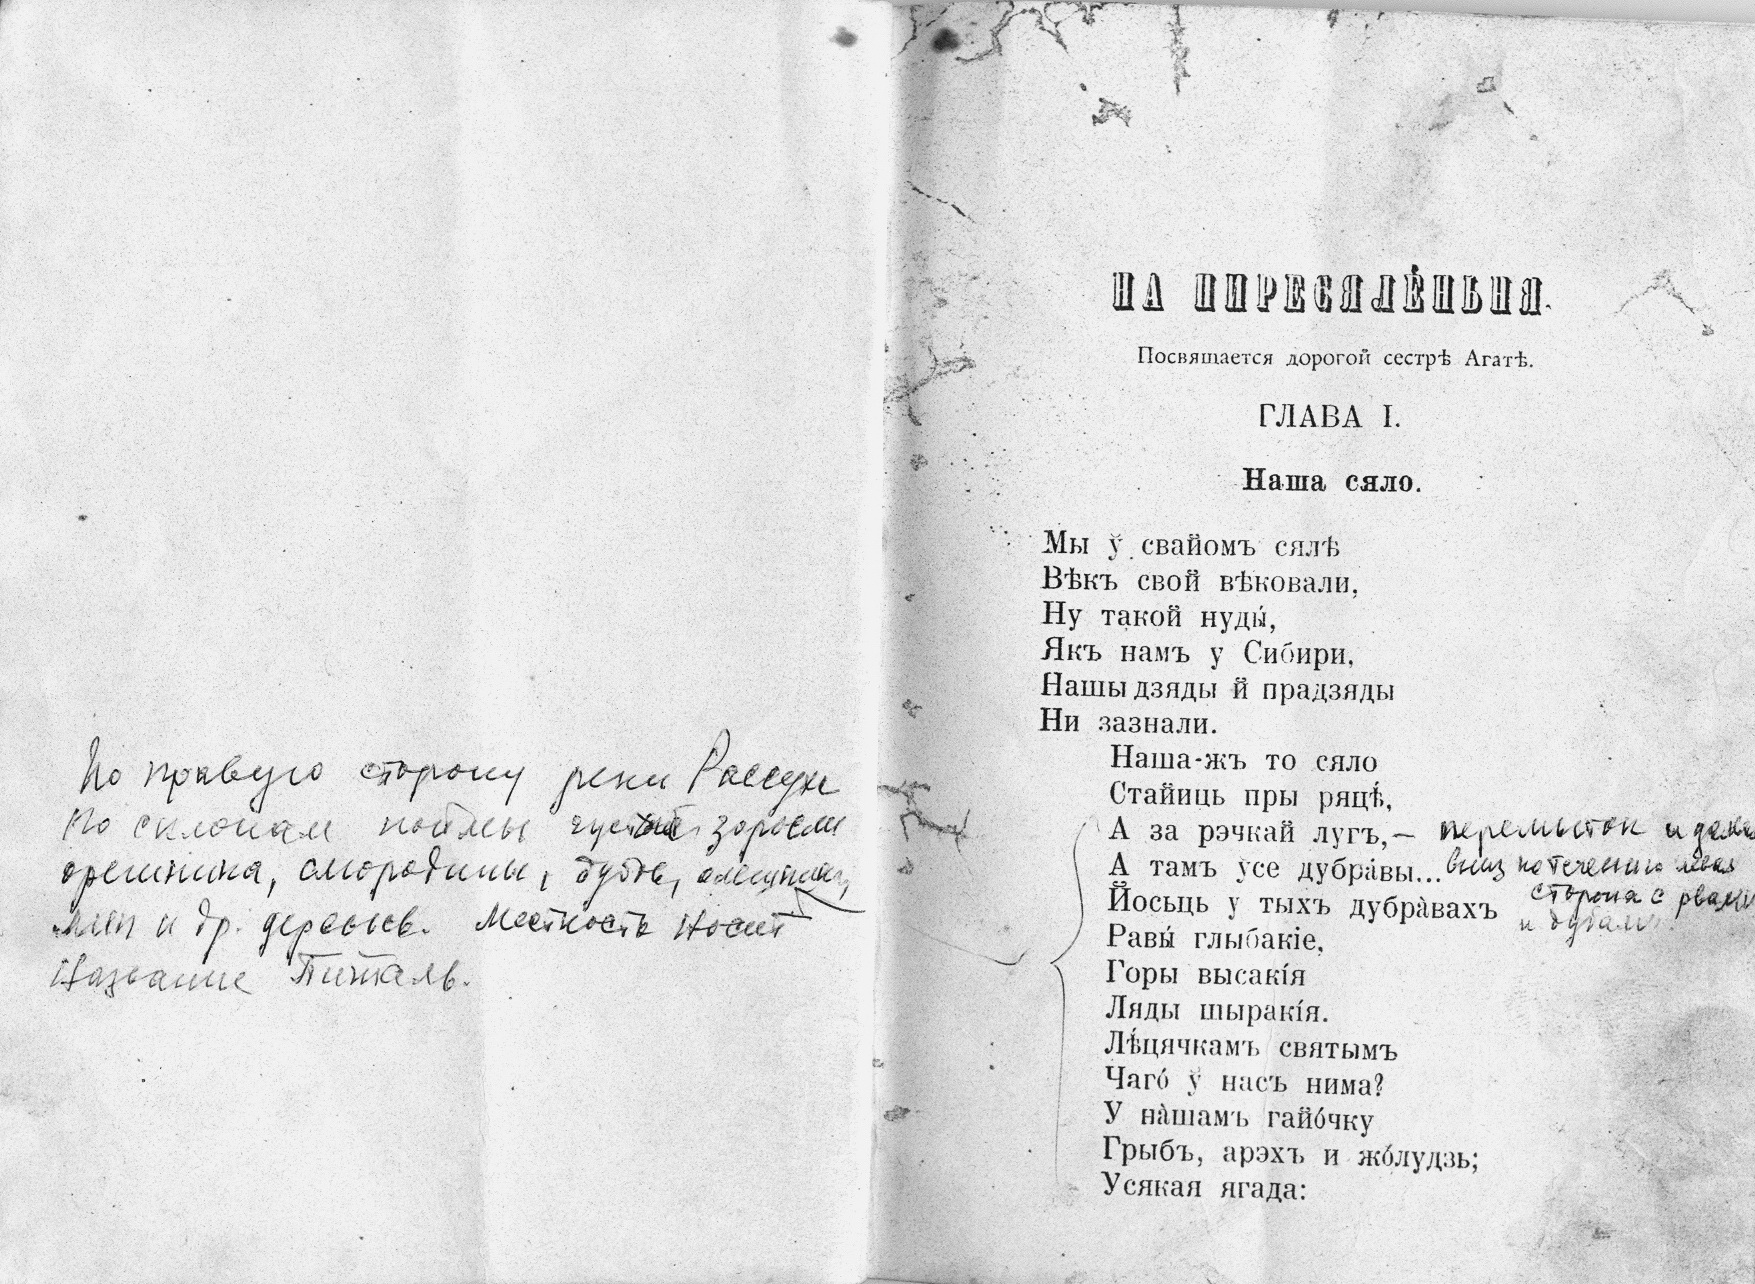 По правую сторону реки Рассухи
по склонам поймы густые заросли
орешника, смородины, дубов,
лип и др. деревьев. Местность носит
название Питаль.
НА ПИРЕСЯЛЕ́НЬНЯ.
Посвящается дорогой сестрѣ Агатѣ.
ГЛАВА I.
Наша сяло.
Мы ў свайомъ сялѣ
Вѣкъ свой вѣковали,
Ну такой нуды́,
Якъ намъ у Сибири,
Нашы дзяды й прадзяды
Ни зазнали.
Наша-жъ то сяло
Стайиць пры ряцѣ́,
А за рэчкай лугъ, — перемыток и далее
А тамъ усе дубра́вы... вниз по течению левая
Йосьць у тыхъ дубра̀вахъ сторона с рвами
и дубами.
Равы́ глыбакіе,
Горы высакі́я
Ляды шыракі́я.
Лѣ́цячкамъ святымъ
Чаго́ ў насъ нима?
У на̀шамъ гайо́чку
Грыбъ, арэхъ и жо́лудзь;
Усякая ягада: